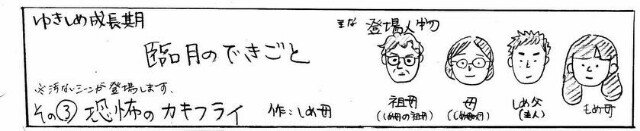 ゆきしめ成長期
臨月のできごと
※汚ないシーンが登場します.
その③ 恐怖のカキフライ 作:しめ母
主な 登場人物
祖母
(しめ母の祖母)
母
(しめ母の母)
しめ父
(主人)
しめ母